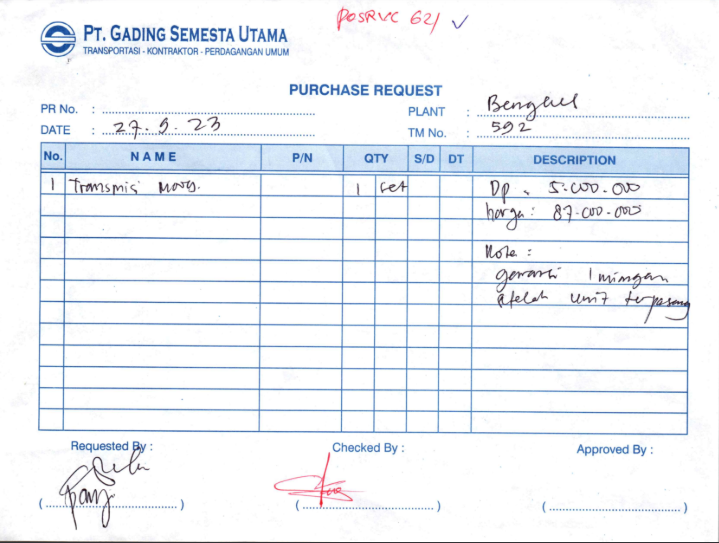 POSRVC 621
PT. GADING SEMESTA UTAMA
TRANSPORTASI - KONTRAKTOR - PERDAGANGAN UMUM
PURCHASE REQUEST
PR No. :
PLANT :
DATE : 27.9.23
TM No. : 592
No. NAME P/N QTY S/D DT DESCRIPTION
1 Transmisi 1 set Dp : 5.000.000
harga : 87.000.000
Note :
garansi 1 minggu
unit terpasang
Requested By : Checked By : Approved By :